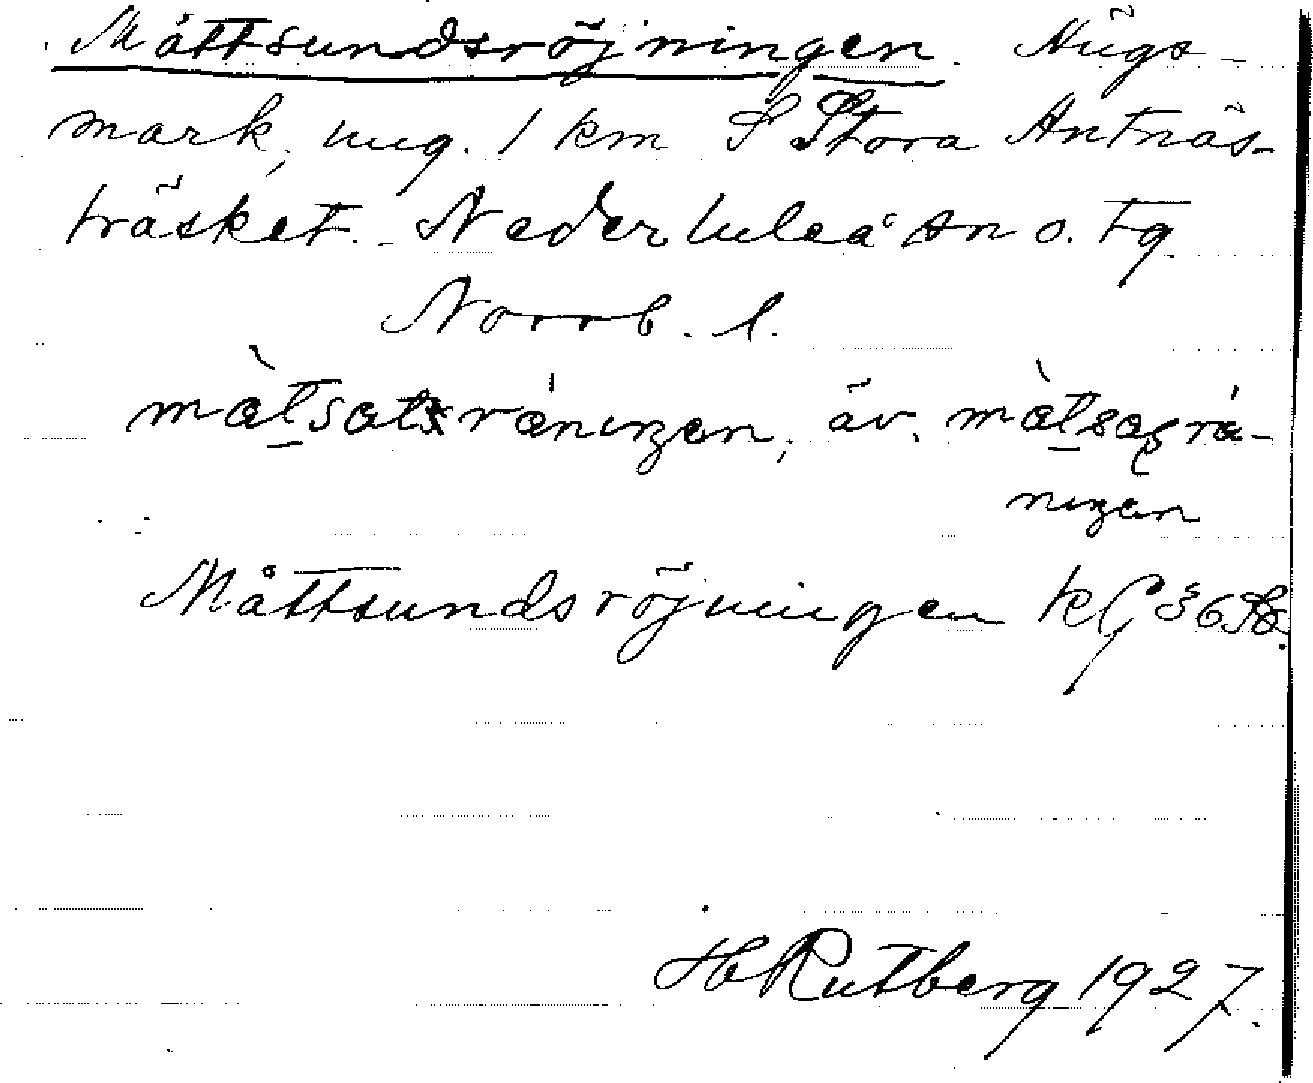 Måttsundsröjningen. Ängs-
mark, ung. 1 km S Stora Anträs-
träsket. Nederluleå sn o. tg
Norrb. l.
màt̲satsräningen, äv. màt̲sagrä-
ningen
Måttsundsröjningen kG 36
H Rutberg 1927.